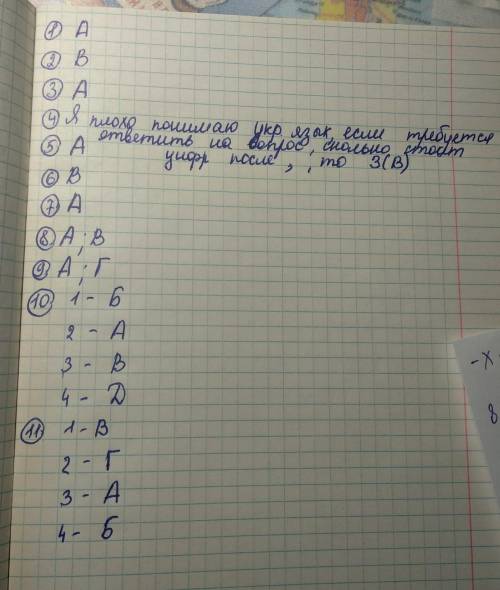 ① А
② В
③ А
④ Я плохо понимаю укр язык, если требуется
ответить на вопрос, сколько стоит
цифр после , , то 3(В)
⑤ А
⑥ В
⑦ А
⑧ А; В
⑨ А; Г
⑩ 1 - Б
2 - А
3 - В
4 - Д
⑪ 1 - В
2 - Г
3 - А
4 - Б
- х
8